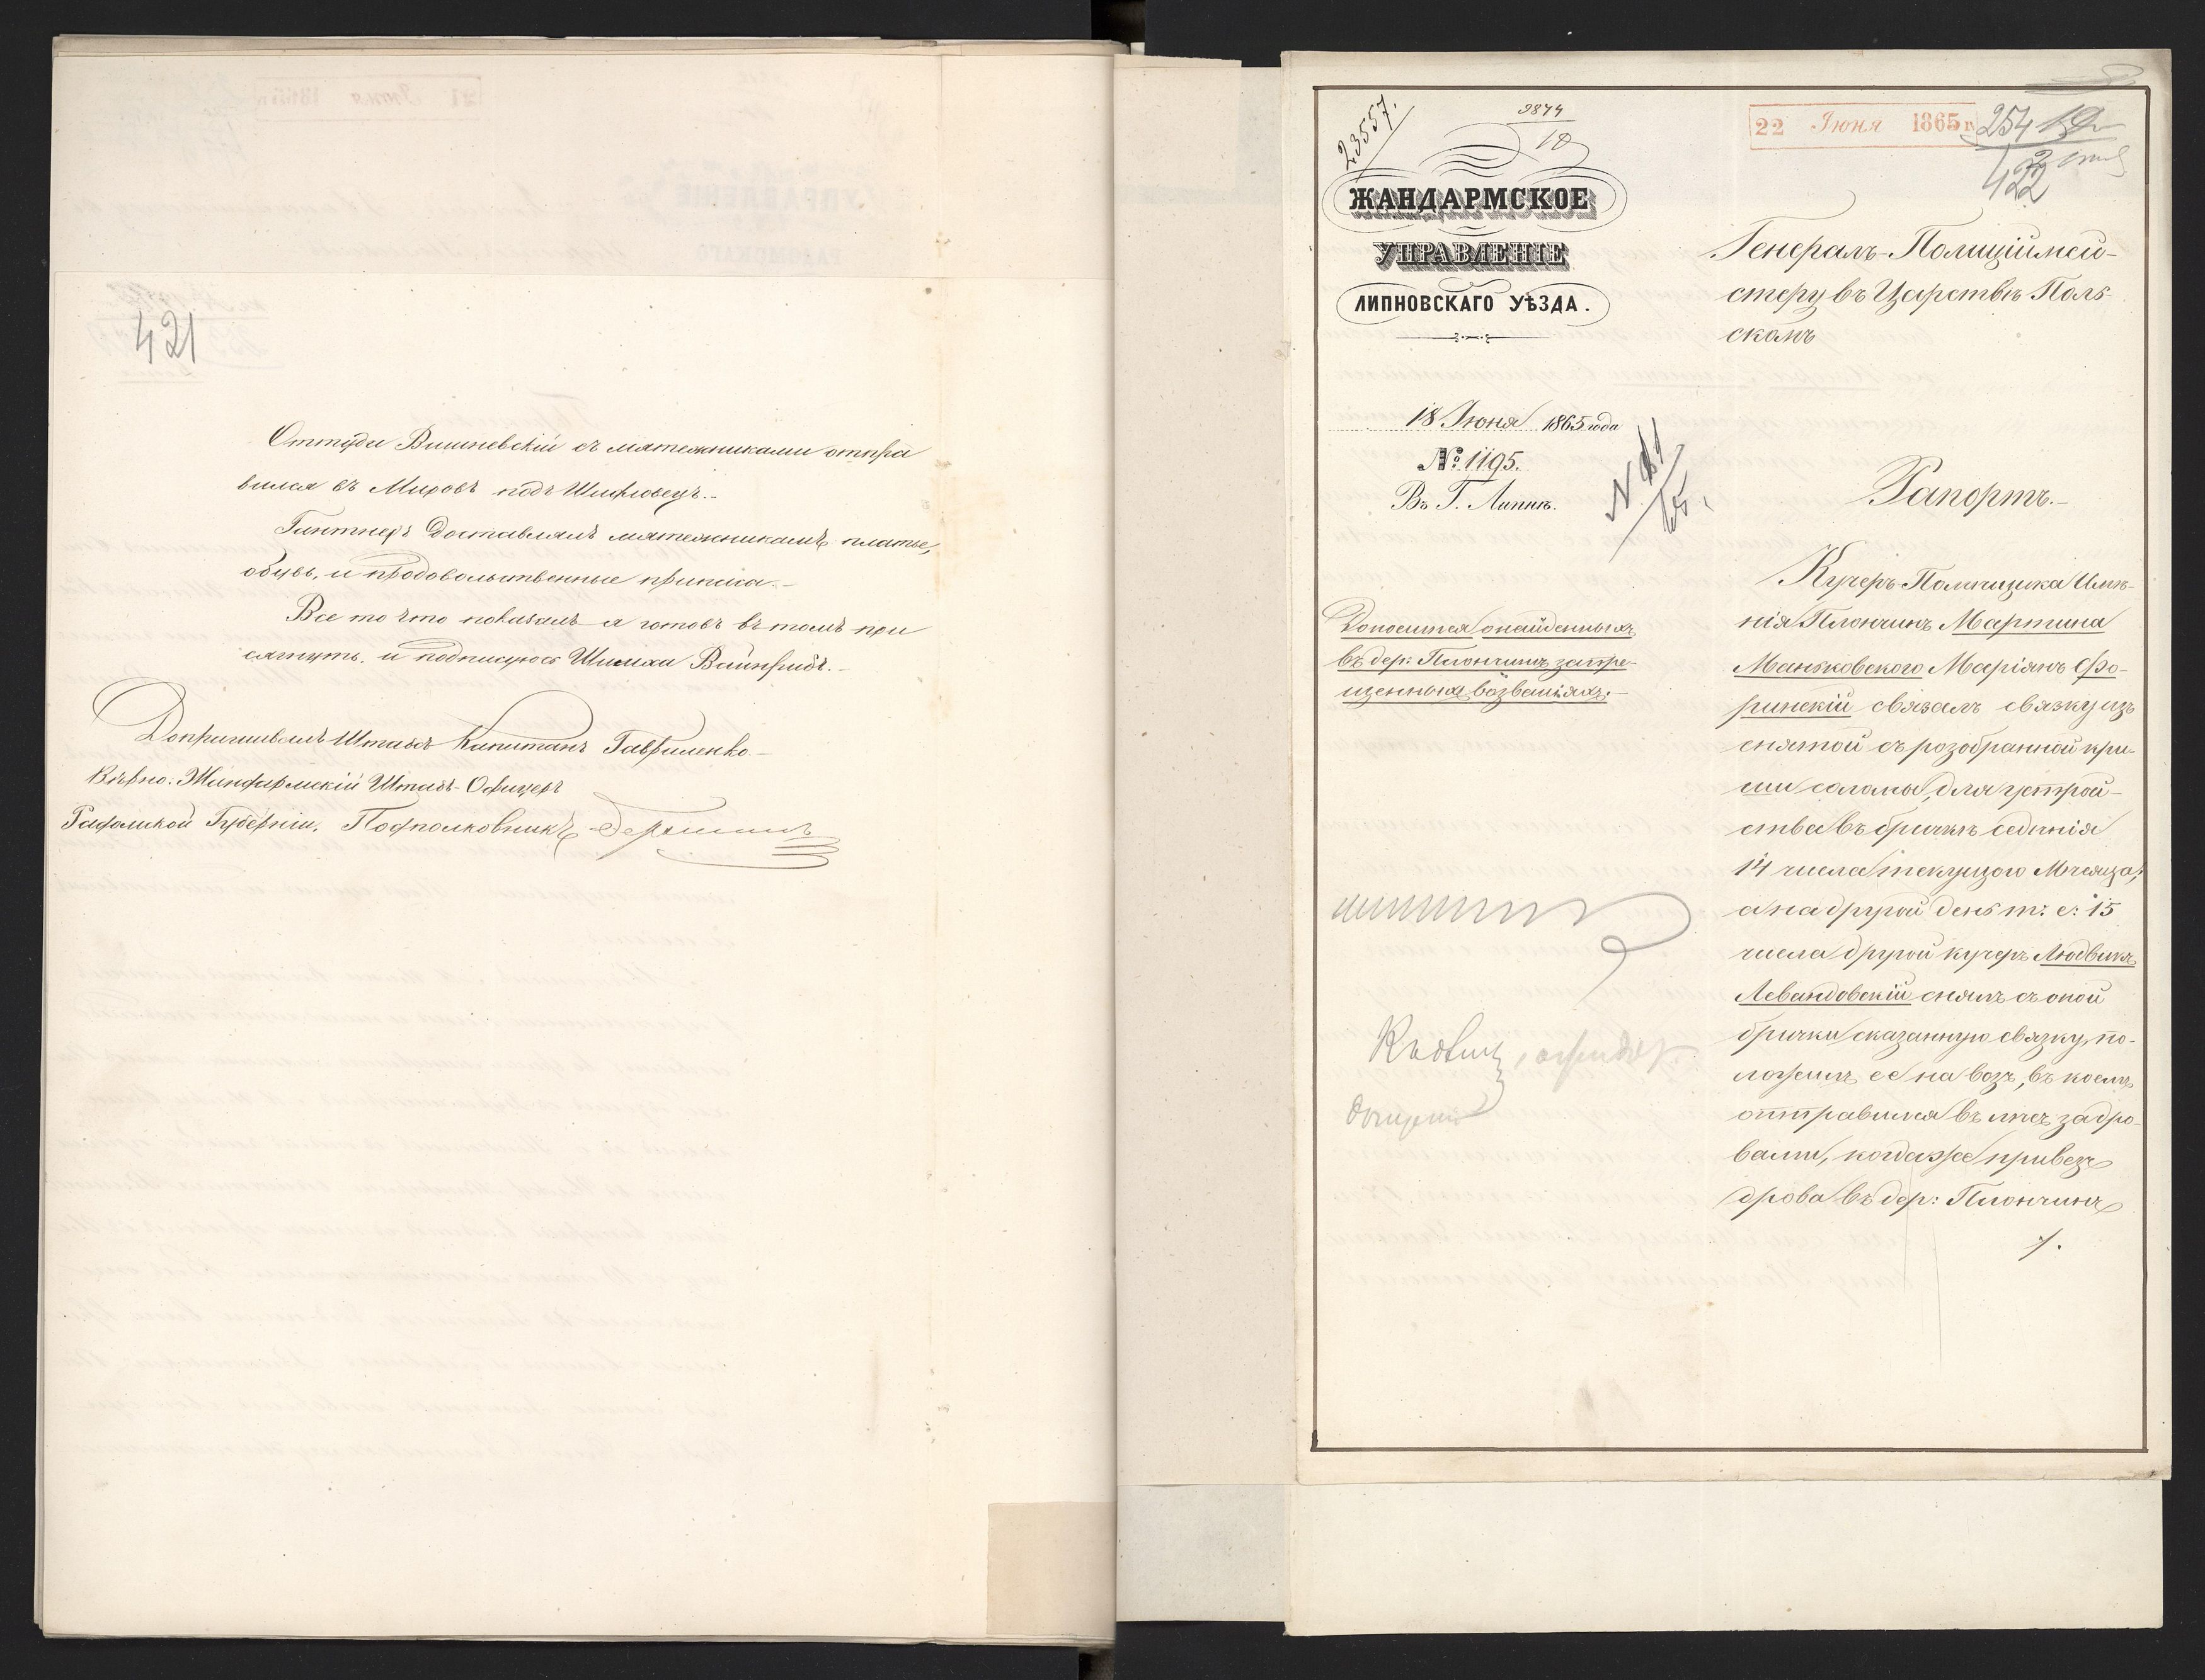 421
Оттуда Вишневскій съ мятежниками отпра
вился въ Мировъ подъ Шидловецъ.-
Гинтнеръ доставлялъ мятежникамъ платье,
обувь, и продовольственные припаса.-
Все то что показалъ я готовъ въ томъ при
сягнуть. и подписуюсь Шимха Вайнрибъ.-
Допрашивалъ Штабсъ Капитанъ Гавриленко.-
Вѣрно: Жандармскій Штабъ-Офицеръ
Радомской Губерніи, Подполковникъ
23557.
3874
10
22 Іюня 1865 г.
254
422
ЖАНДАРМСКОЕ
УПРАВЛЕНІЕ
ЛИПНОВСКАГО УѢЗДА.
18 Іюня 1865 года
№ 1195.
Въ Г. Липнѣ.
Доносится о найденныхъ
въ дер: Плончинъ запре-
щенныхъ возваніяхъ.-
Генералъ-Полиціймей-
стеру въ Царствѣ Поль-
скомъ
Рапортъ.-
Кучеръ Помѣщика Имѣ-
нія Плончинъ Мартина
Маньковского Маріянъ Фло-
ринскій связалъ связку изъ
снятой съ розобранной кры-
ши соломы, для устрой-
ства въ бричкѣ седѣнія
14 числа текущого Мѣсяца,
а на другой день т: е: 15
числа другой кучеръ Людвикъ
Левандовскій снялъ съ оной
брички сказанную связку, по-
ложилъ ее на возъ, въ коемъ
отправился въ лѣсъ за дро-
вами, когда же привезъ
дрова въ дер: Плончинъ
./.